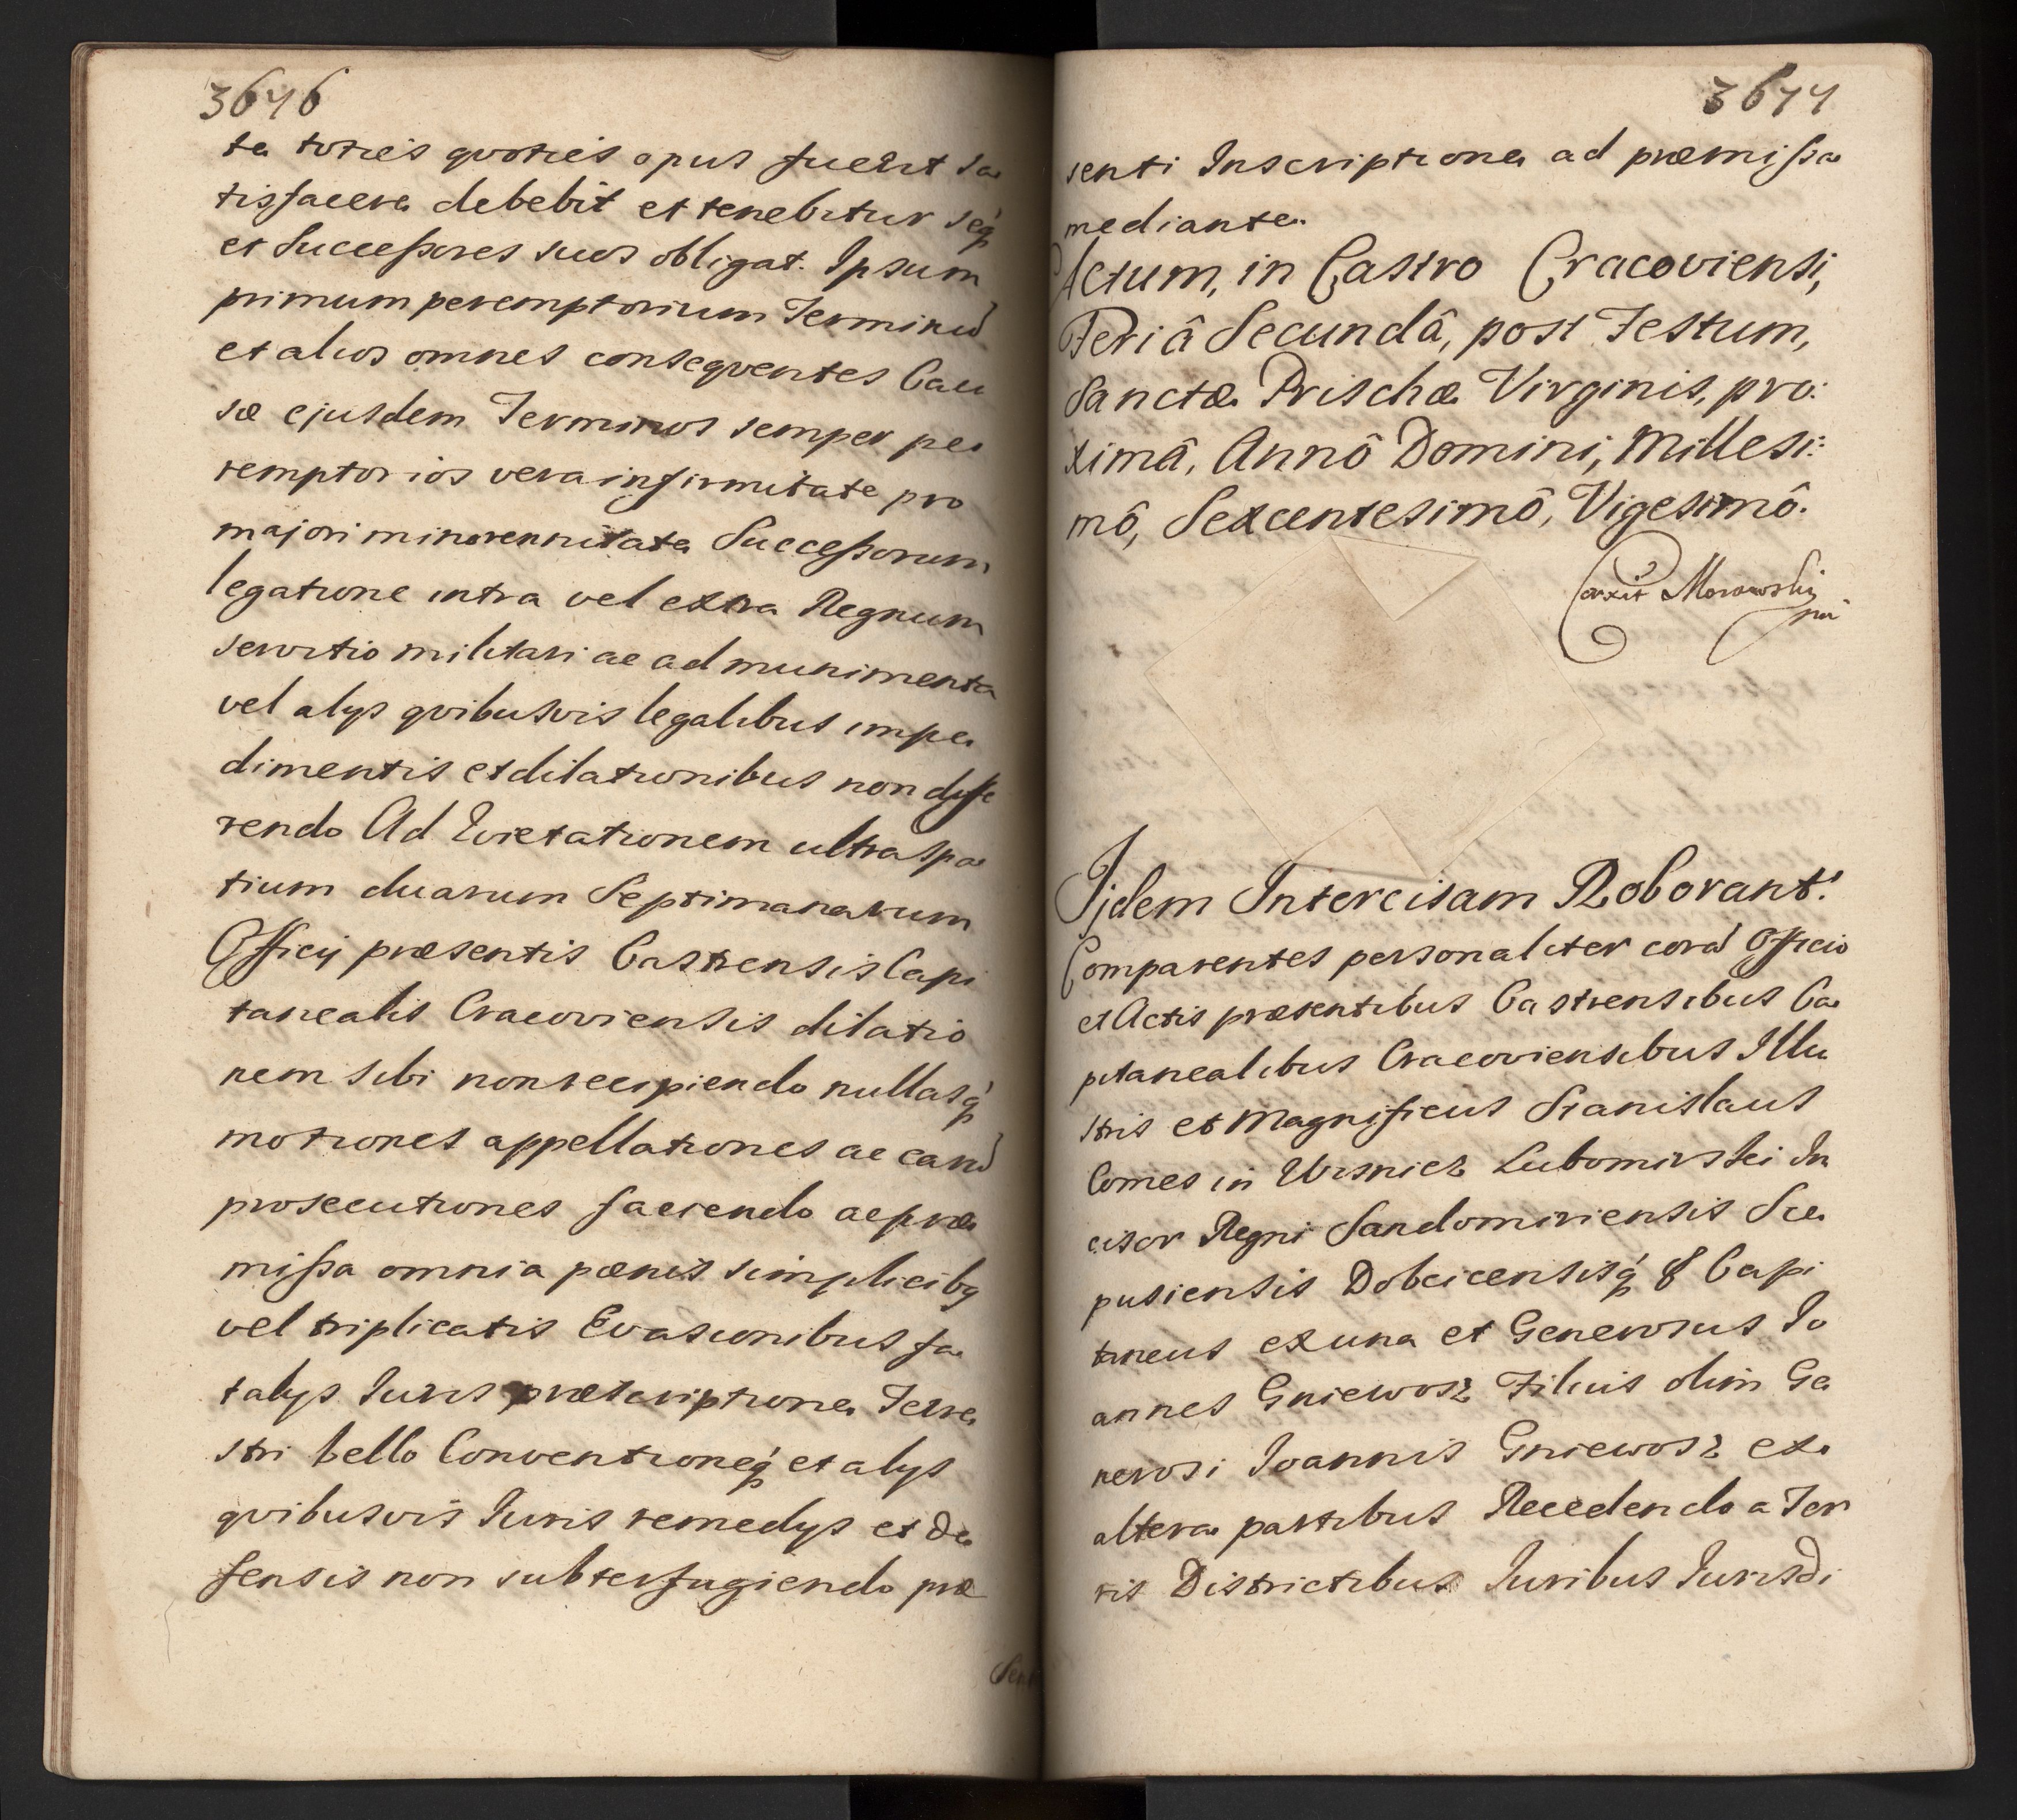 3676
ta toties quoties opus fuerit sa
tisfacere debebit et tenebitur seq́
et Successores suos obligat. Ipsum
primum peremptorium Terminū
et alios omnes conseqventes Cau
sæ ejusdem Terminos semper pe
remptorios vera infirmitate pro
majori minorennitate Successorum
legatione intra vel extra Regnum
servitio militari ac ad munimenta
vel alys qvibusvis legalibus impe
dimentis et dilationibus non diffe
rendo Ad Evictationem ultra spa
tium duarum Septimanarum
Officij præsentis Castrensis Capi
tanealis Cracoviensis dilatio
nem sibi non recipiendo nullasq́
motiones appellationes ac earū
prosecutiones faciendo ac præ
missa omnia pœnis simplicibq
vel triplicatis Evasionibus fa
talys Juris præscriptione Terre
stri bello Conventioneq́ et alys
qvibusvis Juris remedys et de
fensis non subterfugiendo præ
Sen
3677
senti Inscriptione ad præmissa
mediante.
Actum, in Castro Cracoviensi,
Feriâ Secundâ, post Festum,
Sanctæ Prischæ Virginis, pro:
ximâ, Annô Domini, Millesi:
mô, Sexcentesimô, Vigesimô.
Corxit Morawski
pń
Ijdem Intercisam Roborant.
Comparentes personaliter corā Officio
et Actis præsentibus Castrensibus Ca
pitanealibus Cracoviensibus Illu
stris et Magnificus Stanislaus
Comes in Wisnicz Lubomirski In
cisor Regni Sandomiriensis Sce
pusiensis Dobcicensisq́ & Capi
taneus ex una et Generosus Jo
annes Gniewosz Filius olim Ge
nerosi Joannis Gniewosz ex
altera partibus Recedendo a Ter
ris Districtibus Juribus Jurisdi